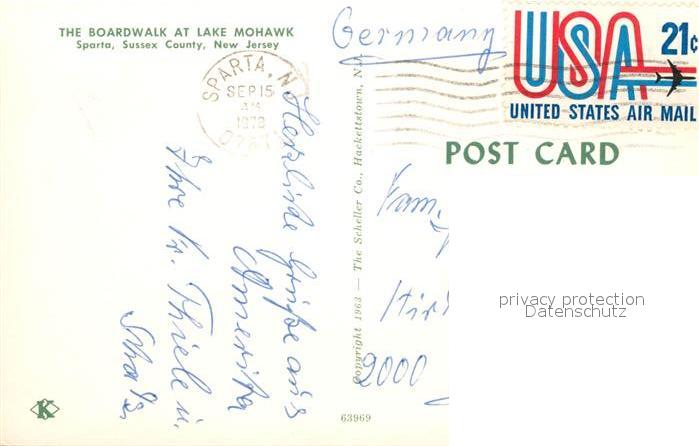 THE BOARDWALK AT LAKE MOHAWK
Sparta, Sussex County, New Jersey
SPARTA, N
SEP 15
AM
1973
Herzliche Grüße aus
Amerika
Ihre Fr. Thiele u.
Copyright 1963 — The Scheller Co., Hackettstown, N.J.
Germany
USA 21c
UNITED STATES AIR MAIL
POST CARD
Fam.
2000
privacy protection
Datenschutz
K
63969